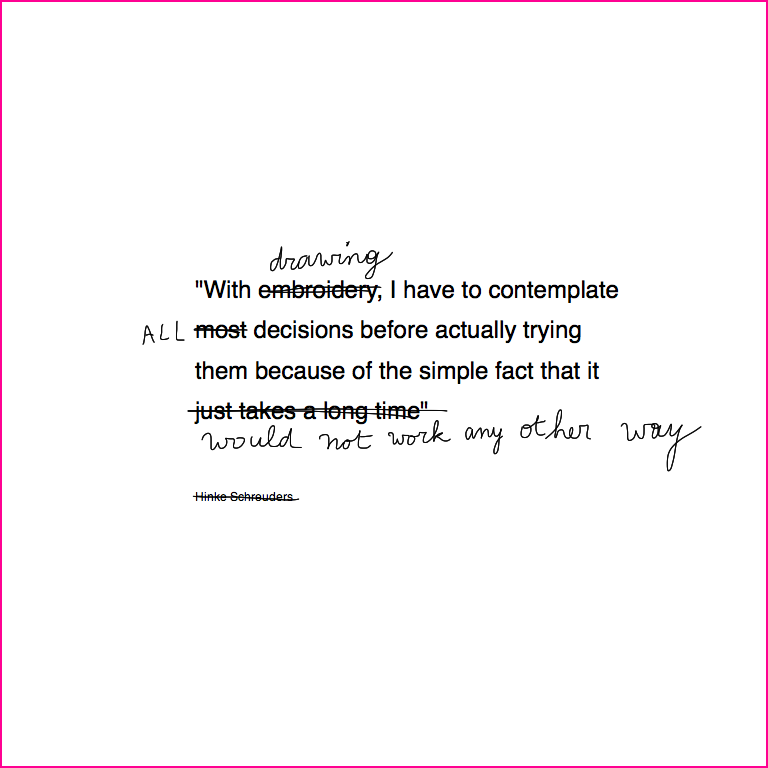 drawing
"With embroidery, I have to contemplate
ALL most decisions before actually trying
them because of the simple fact that it
just takes a long time"
would not work any other way
Hinke Schreuders